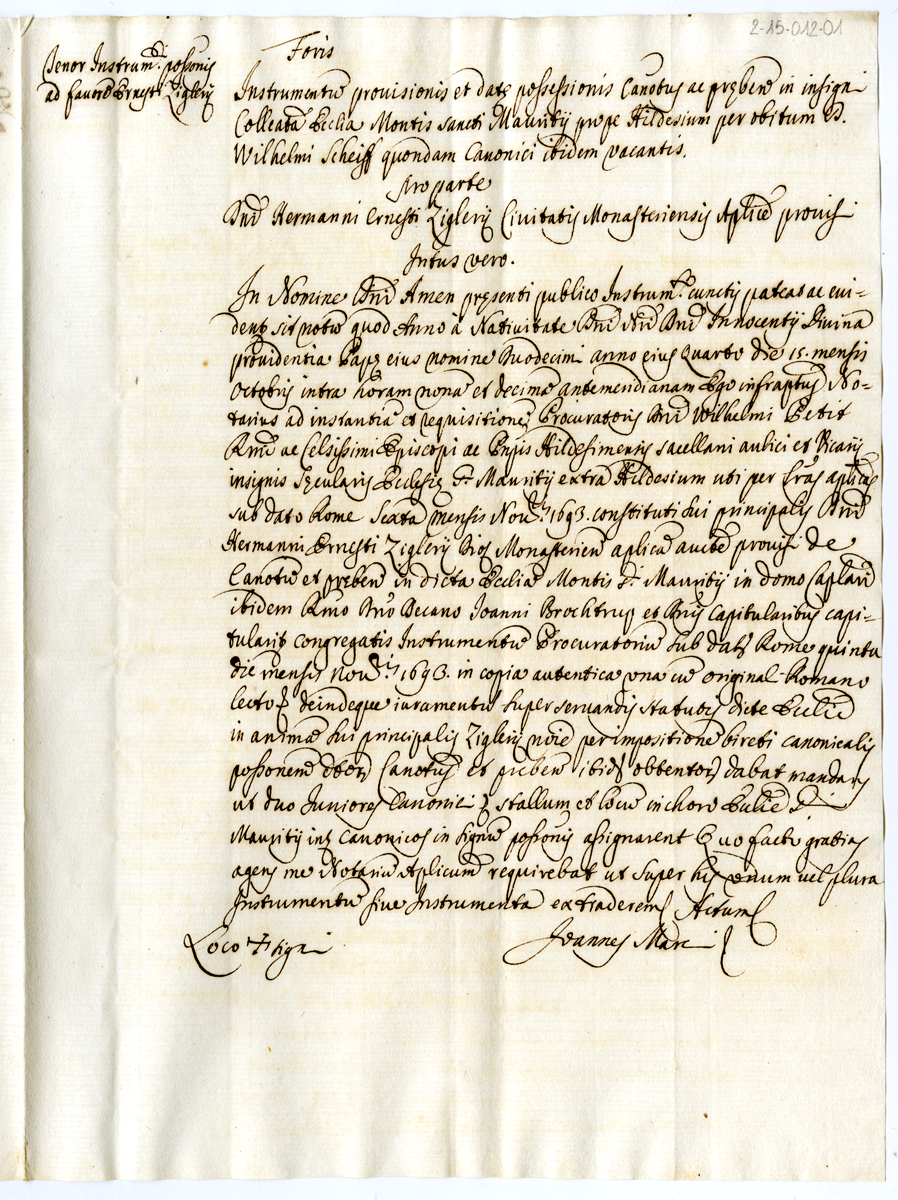 2-15-012-01
Tenor Instrum: possonis
ad favorē Ernesti Zigleri
Foris
Instrumentū provisionis et datę possessionis Canotus ac prębenē in insigni
Colleatā Ecclia Montis sancti Mauritij prope Hildesium per obitum D.
Wilhelmi Scheiff quondam Canonici ibidem vacantis.
Pro parte
Dnī Hermanni ErnestiZiglerij Civitatis Monasteriensis Aplicē provisi
Intus vero.
In Nomine Dnī Amen pręsenti publico Instrum: cunctis pateat ac evi-
denter sit notū quod Anno à Nativitate Dnī Nrī Dnī Innocentij Divinā
providentia Papę eius nomine Duodecimi anno eius Quarto die 15. mensis
Octobris intra horam nonā et decimā antemeridianam Ego infraptus No-
tarius ad instantiā et requisitionē Procuratoris Dnī Wilhelmi Petit
Rmī ac Celsissimi Episcopi ac Pnpis Hildesimensis sacellani aulici et Vicarij
insignis Sęcularis Ecclesię St Mauritij extra Hildesium uti per Lrās aplicās
sub dato Romę Sexta mensis Nov: 1693. constituti sui principalis Dnī
Hermanni Ernesti Ziglerij Monasterien aplicā aucte provisi de
Canotū et pręben in dicta Eccliā Montis St Mauritij in domo Caplarī
ibidem Rmo Dno Decano Joanni Brochtrup et Dnis Capitularibus capi-
tularit congregatis Instrumentū Procuratoriū sub dat Romę quinta
die mensis Nov: 1693. in copia autentica una cū original Romano
lecto deindeque iuramentū super servandis statutis dictę Ecclię
in animā sui principalis Ziglerij per impositionē bireti canonicalis
possonem Canotus et preben ibid obtentor dabat mandans
ut duo Juniores Canonici stallum et locū in choro Ecclię St
Mauritij int Canonicos in signū possonis assignarent Quo facto gratias
agens me Notariū Aplicum requirebat ut super his unum vel plura
Instrumentū sive Instrumenta extraderem Actum
Loco + signi
Joannes Marc